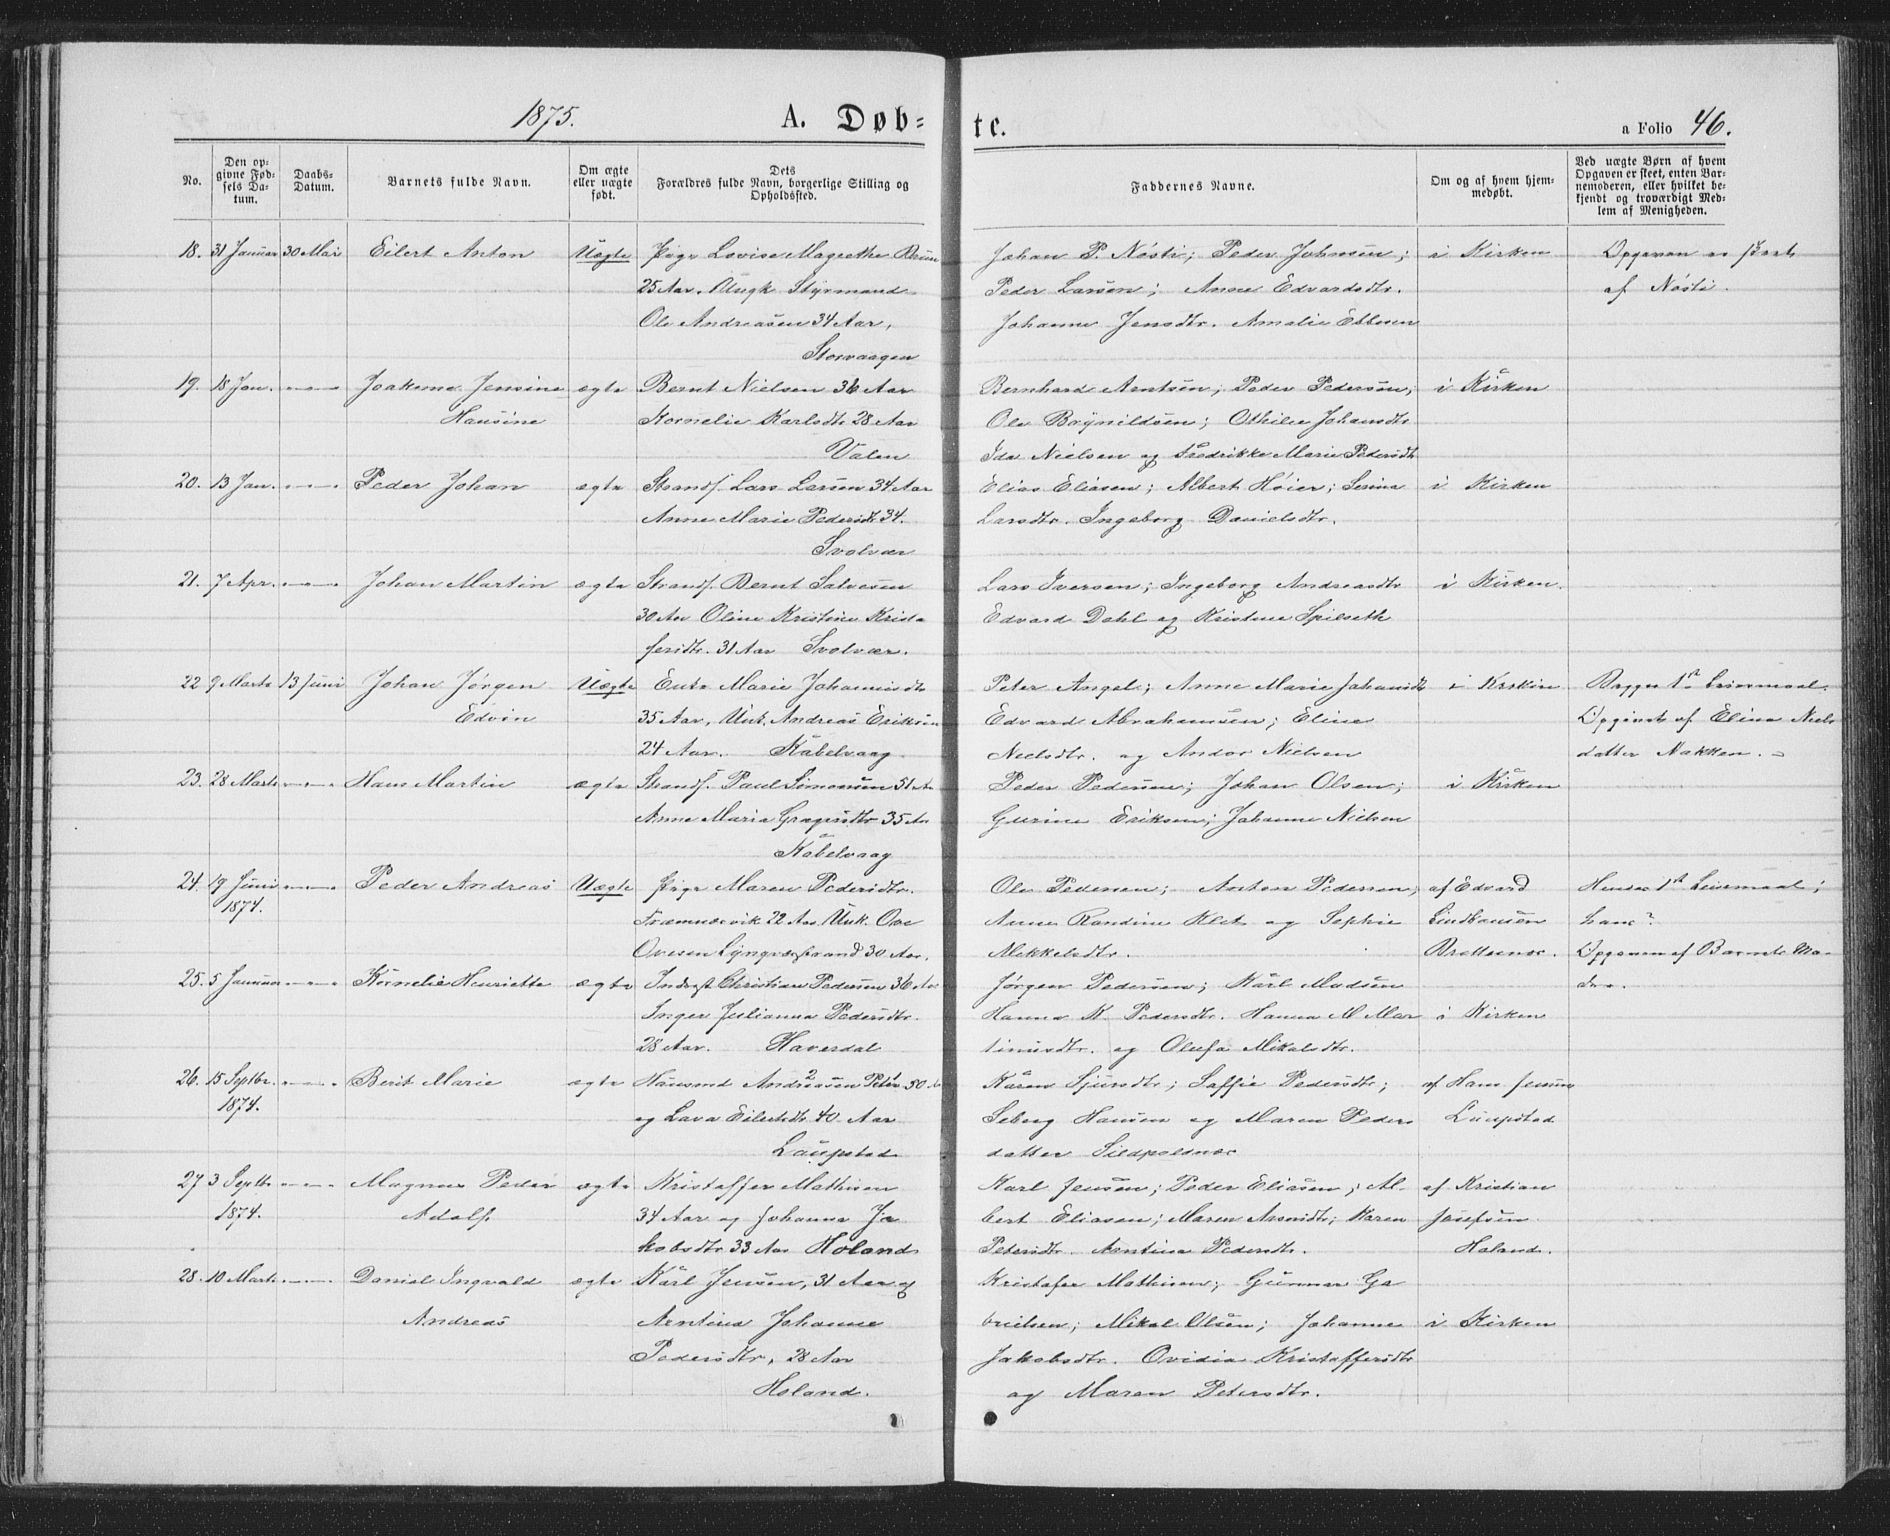 1875. A. Døb= te. a Folio 46.
No. Den opgivne Fødsels Datum. Daabs-Datum. Barnets fulde Navn. Om ægte eller uægte født. Dets Forældres fulde Navn, borgerlige Stilling og Opholdssted. Faddernes Navne. Om og af hvem hjemmedøbt. Ved uægte Børn af hvem Opgaven er skeet, enten Barnemoderen, eller hvilket bekjendt og troværdigt Medlem af Menigheden.
18. 31 Januar 30 Mai Eilert Anton Uægte Pige Lovise Magrethe Johan P. Nøsti; Peder Johnsen; i Kirken Opgaven er skeet
25 Aar. Ungk. Styrmand Peder Larsen; Anne Edvardsdtr. af Nøsti.
Ole Andreasen 34 Aar, Johanne Jensdtr. Amalie Ebbesen
Storvaagen
19. 18 Jan. -"-"- Joakime Jensine ægte Bernt Nielsen 36 Aar Bernhard Arntsen; Peder Pedersen; i Kirken
Hansine Kornelie Karlsdtr 28 Aar Ole Brynildsen; Othilie Johansdtr
Valen Ida Nielsen og Fredrikke Marie Pedersdtr
20. 13 Jan. -"-"- Peder Johan ægte Strands. Lars Larsen 34 Aar Elias Eliasen; Albert Høier; Serina i Kirken
Anne Marie Pedersdtr 34. Larsdtr. Ingeborg Danielsdtr.
Svolvær
21. 7 Apr. -"-"- Johan Martin ægte Strands. Bernt Salvesen Lars Iversen; Ingeborg Andreasdtr i Kirken.
30 Aar Oline Kristine Kristo- Edvard Dahl og Kristine Spilseth
fersdtr. 31 Aar Svolvær.
22 9 Marts 13 Juni Johan Jørgen Uægte Enke Marie Johannesdtr Peter Angel; Anne Marie Johansdtr i Kirken Begges 1st Leiermaal.
Edvin 35 Aar, Unk. Andreas Eriksen Edvard Abrahamsen; Eline Opgivet af Elina Niels
24 Aar. Kabelvaag Neelsdtr. og Andor Nielsen datter Nakken.
23. 28 Marts -"-"- Hans Martin ægte Strands. Paul Simonsen 51 Aar Peder Pedersen; Johan Olsen; i Kirken
Anne Maria 35 Aar Gurine Eriksen; Johanne Nielsen
Kabelvaag
24. 19 Juni -"-"- Peder Andreas Uægte Pige Maren Pedersdtr. Ole Pedersen; Anton Pedersen; af Edvard Hendes 1st Leiermaal;
1874. 22 Aar, Unk. Ove Anne Randine Klet og Sophie Lindhansen hans?
Ovesen Lyngværstrand 30 Aar. Mekkelsdtr. Brettesnes. Opgaven af Barnets Mo-
25. 5 Januar -"-"- Kornelie Henriette ægte Inderst Christian Pedersen 36 Aar Jørgen Pedersen; Karl Madsen dr.
Inger Julianna Pedersdtr. Hanna K. Pedersdtr. Hanna M Mar i Kirken
28 Aar. Haversdal tinusdtr. og Olufa Mikalsdtr.
26. 15 Septbr. -"-"- Berit Marie ægte Husmd Andreasen Peter 50 Aar Karen Sjursdtr; Saffie Pedersdtr; af Hans Jensen
1874. og Lava Eilertsdtr 40 Aar Seberg Hansen og Maren Peders Laupstad
Laupstad datter Sildpoldnes
27 3 Septbr -"-"- Magnus Peder ægte Kristaffer Mathisen Karl Jensen; Peder Eliasen; Al- af Kristian
1874. Adolf 34 Aar og Johanna Ja bert Eliasen; Maren Arontdtr; Karen Josefsen
kobsdtr 33 Aar Holand Petersdtr. Arntina Pedersdtr. Holand.
28. 10 Marts -"-"- Daniel Ingvald ægte Karl Jensen, 31 Aar og Kristafer Mathisen; Gunnar Ga
Andreas Arntina Johanne brielsen; Mikal Olsen; Johanne i Kirken
Pedersdtr, 28 Aar Jakobsdtr. Ovidia Kristaffersdtr
Holand. og Maren Petersdtr.